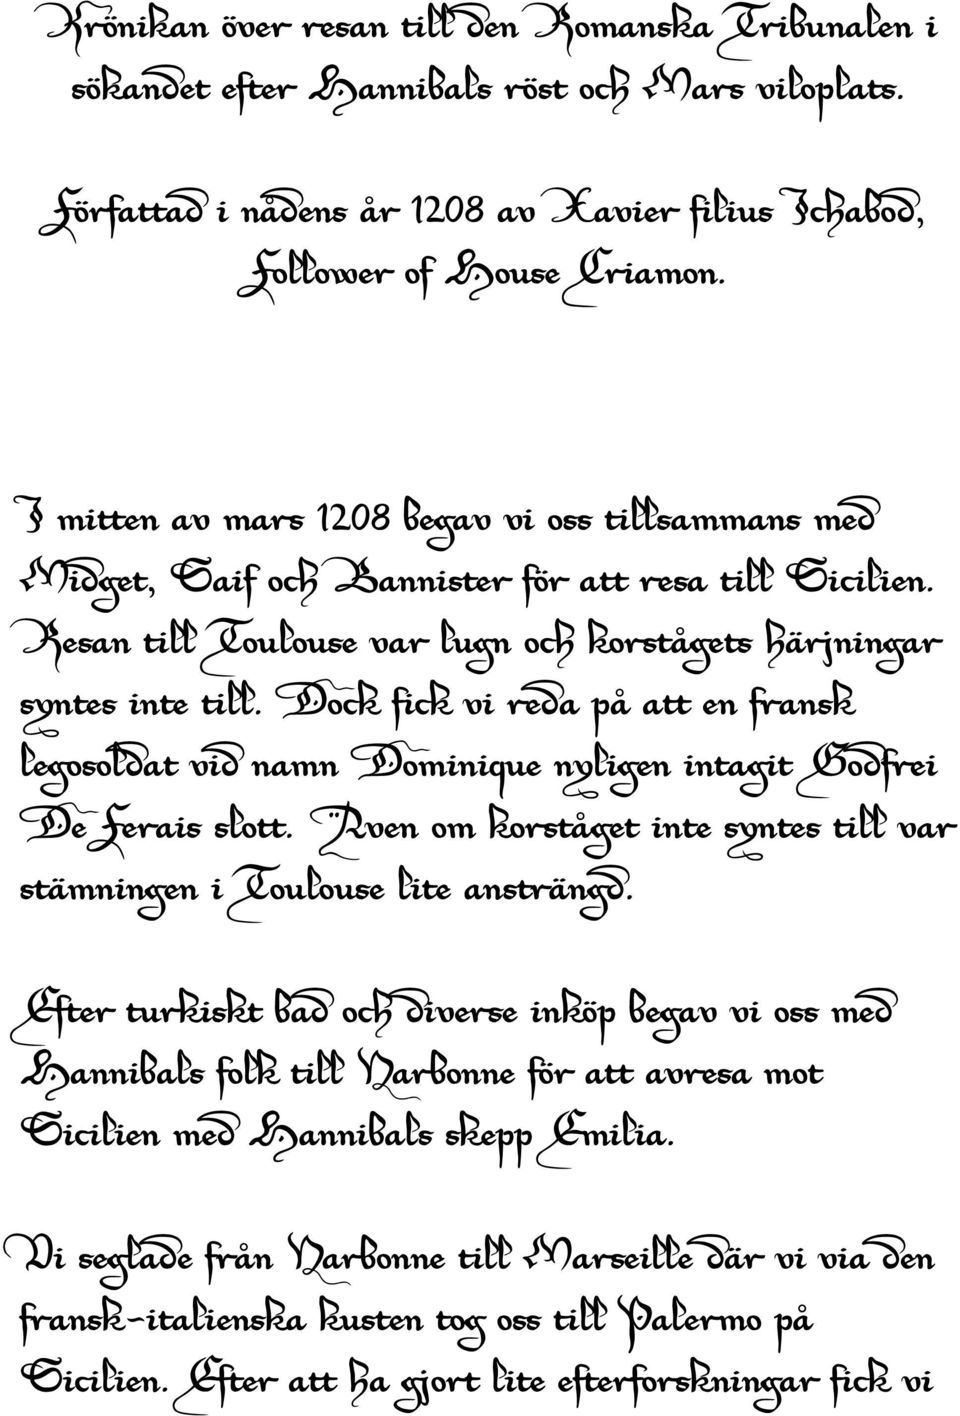 Krönikan över resan till den Romanska Tribunalen i
sökandet efter Hannibals röst och Mars viloplats.
Författad i nådens år 1208 av Xavier filius Ichabod,
Follower of House Criamon.
I mitten av mars 1208 begav vi oss tillsammans med
Midget, Saif och Bannister för att resa till Sicilien.
Resan till Toulouse var lugn och korstågets härjningar
syntes inte till. Dock fick vi reda på att en fransk
legosoldat vid namn Dominique nyligen intagit Godfrei
De Ferais slott. Även om korståget inte syntes till var
stämningen i Toulouse lite ansträngd.
Efter turkiskt bad och diverse inköp begav vi oss med
Hannibals folk till Narbonne för att avresa mot
Sicilien med Hannibals skepp Emilia.
Vi seglade från Narbonne till Marseille där vi via den
fransk-italienska kusten tog oss till Palermo på
Sicilien. Efter att ha gjort lite efterforskningar fick vi